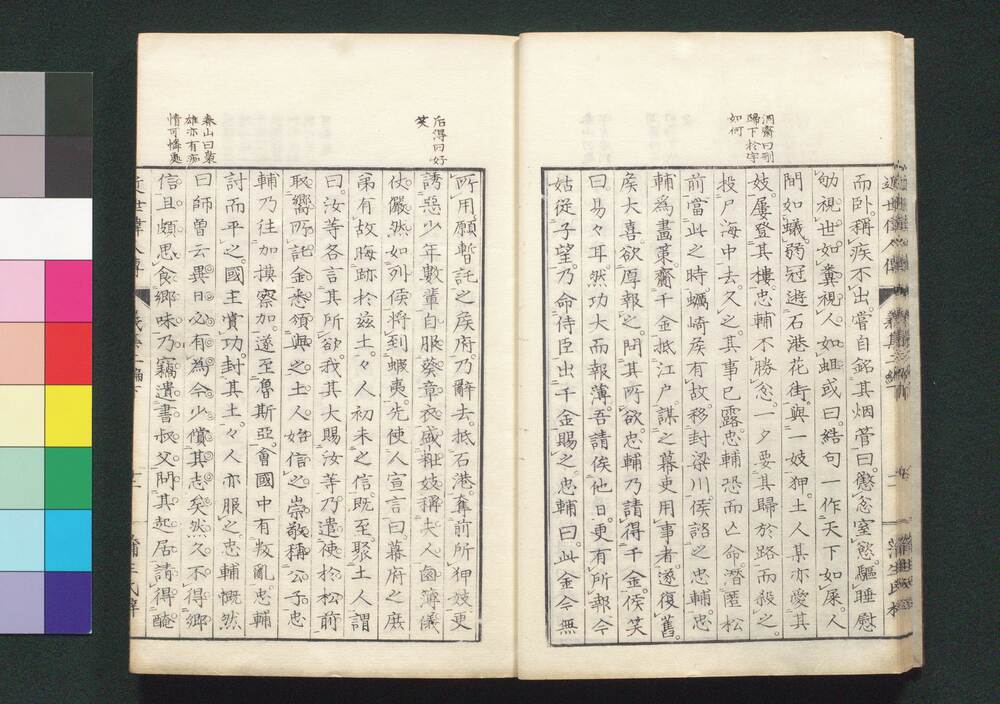 洞齋曰刑
歸下於字
如何
而卧。稱疾不出。嘗自銘其烟管曰。懲忿室慾。驅睡慰
劬。視世如糞。視人如蛆。或曰。結句一作天下如屎。人
間如蟻。弱冠遊石港花街。與一妓狎。土人某亦愛其
妓。屢登其樓。忠輔不勝忿。一夕要其歸於路而殺之。
投尸海中去。久之。其事已露。忠輔恐而亡命。潛匿松
前。當此之時。蠣崎矦有故。移封梁川。矦諮之忠輔。忠
輔為畫策。齎千金抵江戶。謀之幕吏用事者。遂復舊。
矦大喜。欲厚報之。問其所欲。忠輔乃請得千金。矦笑
曰。易々耳。然功大而報薄。吾請俟他日。更有所報。今
姑從子望。乃命侍臣出千金賜之。忠輔曰。此金今無
后得曰好
笑
泰山曰梟
雄亦有
情可憐
所用。願暫託之矦府。乃辭去。抵石港。奪前所狎妓。更
誘惡少年數輩。自服葵章衣。盛粧妓稱夫人。鹵簿儀
仗。儼然如列侯。將到蝦夷。先使人宣言曰。幕府之庶
弟有故。晦跡於茲土。々人初未之信。既至。聚土人謂
曰。汝等各言其所欲。我其大賜汝等。乃遣使於松前。
取嚮所託金。悉頒與之。土人始信之。崇敬稱公子。忠
輔乃往加摸察加。遂至魯斯亞。會國中有叛亂。忠輔
討而平之。國主賞功。封其土。々人亦服之。忠輔慨然
曰。師曾云。異日必有為。今少償其志矣。然久不得鄉
信。且頗思食鄉味。乃竊遺書叔父。問其起居。請得醃